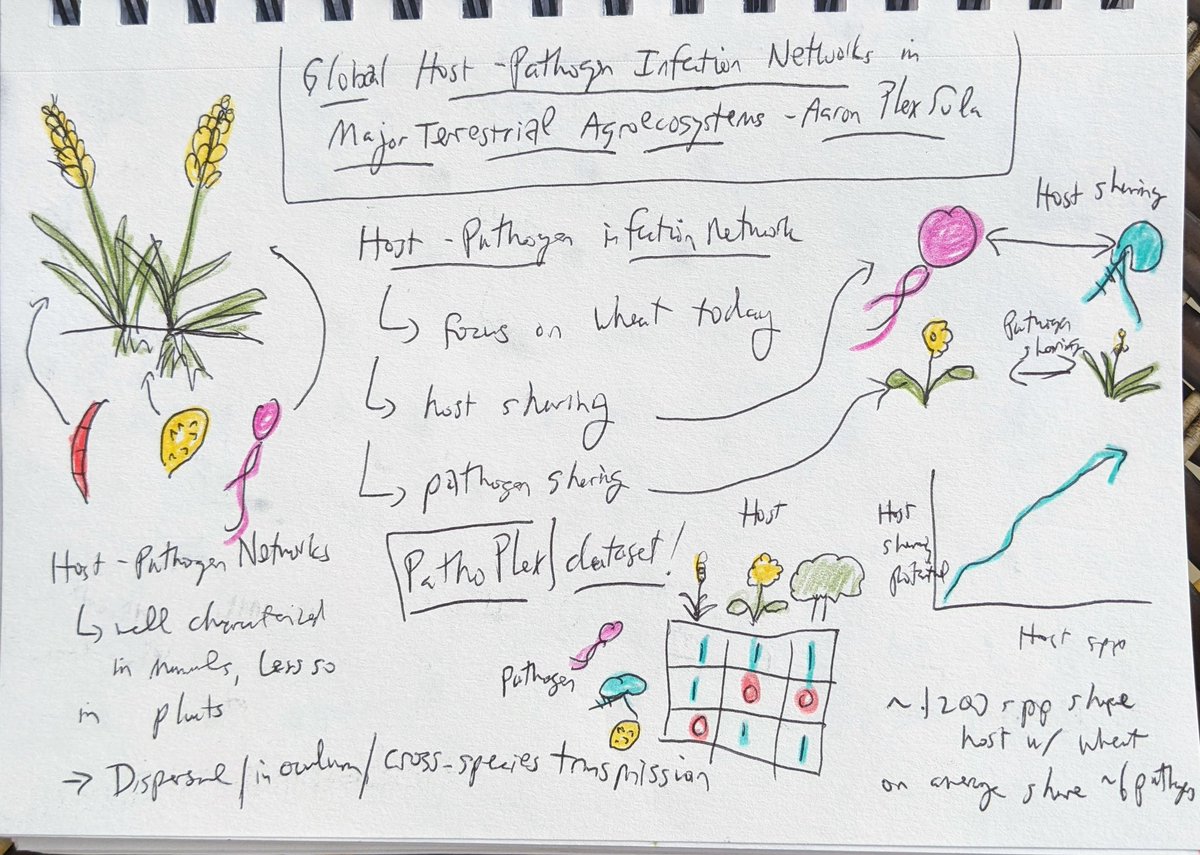 Global Host-Pathogen Infection Networks in
Major Terrestrial Agroecosystems - Aaron Plex Sula
Host-Pathogen infection Network
↳ focus on wheat today
↳ host sharing
↳ pathogen sharing
Host sharing
Pathogen
sharing
Host-Pathogen Networks
↳ well characterized
in mammals, less so
in plants
→ Dispersal/inoculum/cross-species transmission
PathoPlex dataset!
Host
Pathogen
1 1 1
1 0 0
0 1 1
Host
sharing
potential
Host spp
~1200 spp share
host w/ wheat
on average share ~6 pathogens